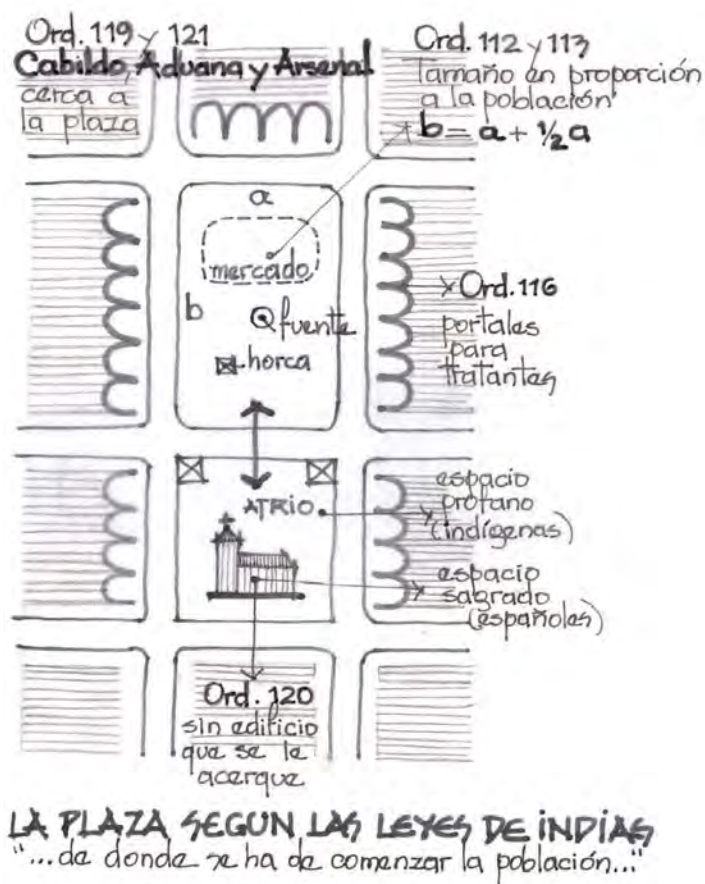 Ord. 119 y 121
Cabildo, Aduana y Arsenal
cerca a
la plaza
Ord. 112 y 113
Tamaño en proporción
a la población
b = a + ½ a
a
mercado
b
fuente
horca
Ord. 116
portales
para
tratantes
ATRIO
espacio
profano
(indígenas)
espacio
sagrado
(españoles)
Ord. 120
sin edificio
que se le
acerque
LA PLAZA SEGUN LAS LEYES DE INDIAS
"...de donde se ha de comenzar la población..."